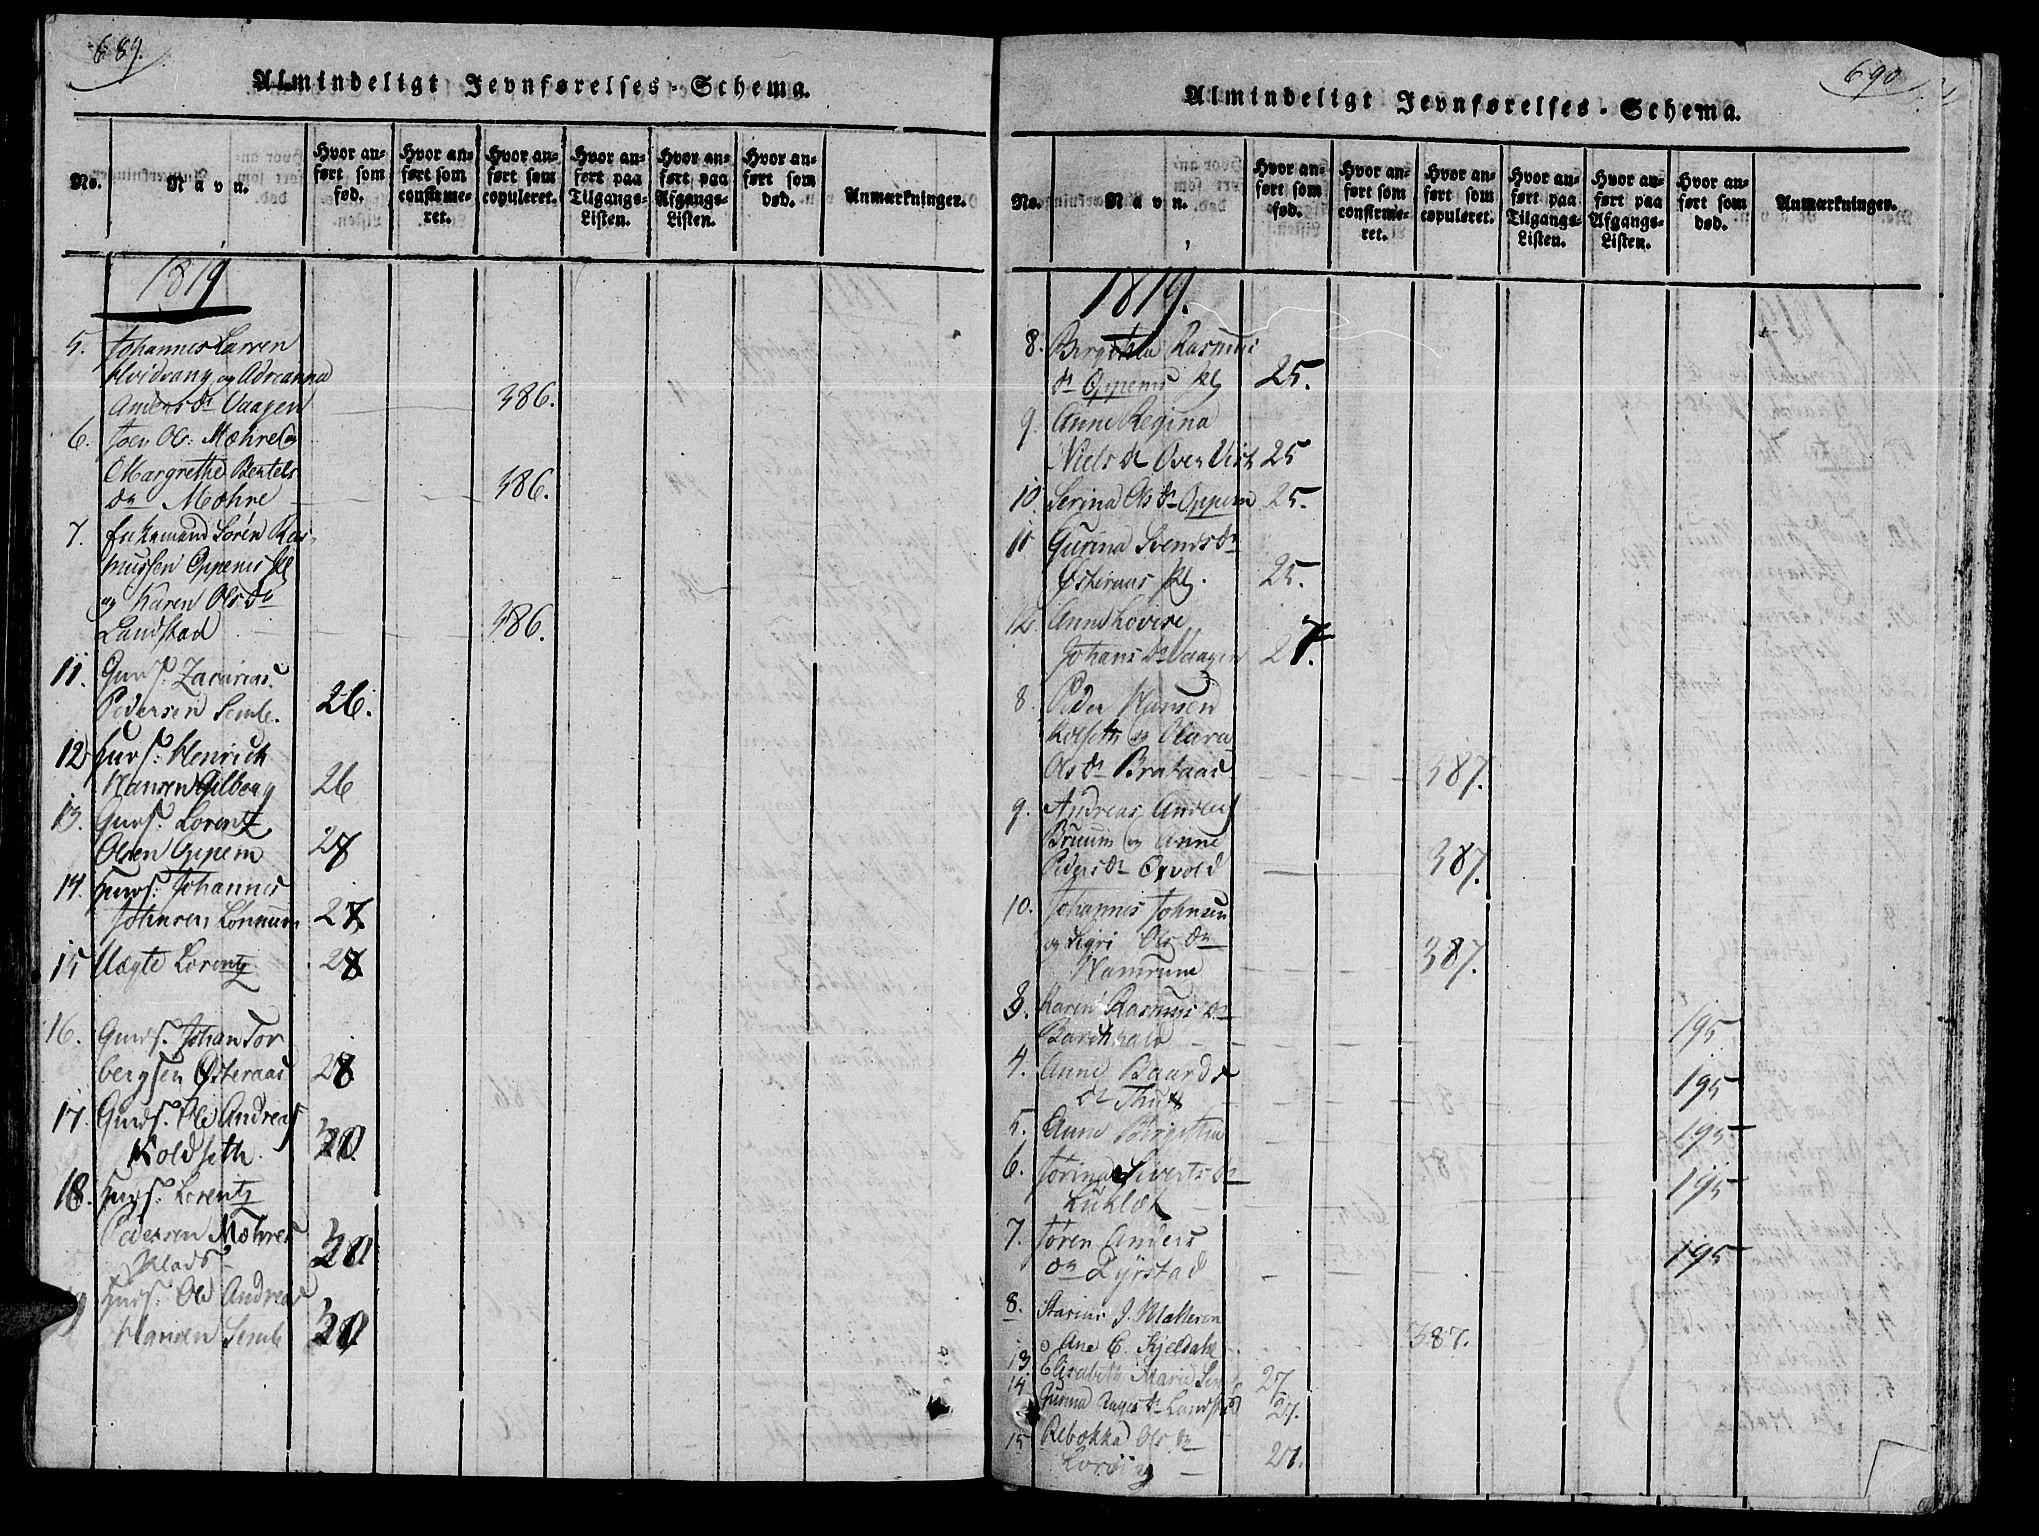 689.
Almindeligt Jevnførelses-Schema.
No.
Navn.
Hvor an-
ført som
fød.
Hvor an-
ført som
confirme-
ret.
Hvor an-
ført som
copuleret.
Hvor an-
ført paa
Tilgangs-
Listen.
Hvor an-
ført paa
Afgangs-
Listen.
Hvor an-
ført som
død.
Anmærkninger.
1819
5. Johannes Larsen
Hvidvang og Adreanna
Anders dr Vaagen 386.
6. Joen Ols: Mæhre og
Margrethe Bentels
dr Mæhre 386.
7. Enkemand Sørén Ras-
mussen Oppems pl
og Karen Ols dr
Landstad 386.
11. Zacarias
Pedersen Semle. 26.
12 Henrich
Hansen Gilberg 26
13. Lorentz
Olsen Oppem 28
14. Johannes
Johnsen 28
15 Uægte Lorentz 28
16. Johan Tor
bergsen Østeraas 28
17. Ole Andreas
Koldseth.
18. Lorentz
Pedersen Mæhres
Ole Andreas
Hansen Semle
690
Almindeligt Jevnførelses-Schema.
No.
Navn.
Hvor an-
ført som
fød.
Hvor an-
ført som
confirme-
ret.
Hvor an-
ført som
copuleret.
Hvor an-
ført paa
Tilgangs-
Listen.
Hvor an-
ført paa
Afgangs-
Listen.
Hvor an-
ført som
død.
Anmærkninger.
1819.
8. Rasmus
dr Oppems pl 25.
9. Anne Regina
Niels dr Over Vist 25
10 Serina Ols dr Oppem 25.
11 Gurina Svends dr
Østeraas pl. 25.
12 Anne Lovise
Johans dr Vaagen 27.
8. Peder Hansen
Kolseth og Olava
Ols dr Brataas 387.
9. Andreas Anders
Bruum og Anne
Peders dr Orvold 387.
10. Johannes Johnsen
og Sigri Ols dr
Hamrune 387.
3. Karen Rasmus dr
195
4. Anne Baards
dr 195
5. Anne Birgitha 195
6. Sivertsdr
195
7. Toren Anders
dr Lyrstad 195
8. J. Mathesen
o Ane E. Kjeldahl 387.
13. Elisabeth Marie 27
14 Gurina Aages dr Landstad 27.
15 Rebekka Ols dr
27.